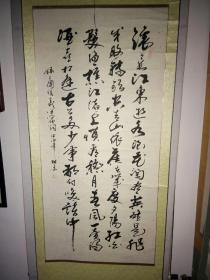 江东逝水浪花淘尽英雄是非
成败转头空青山依旧在几度夕阳红白
髮渔樵江渚上惯看秋月春风一壶浊
酒喜相逢古今多少事都付笑谈中
录三国演义